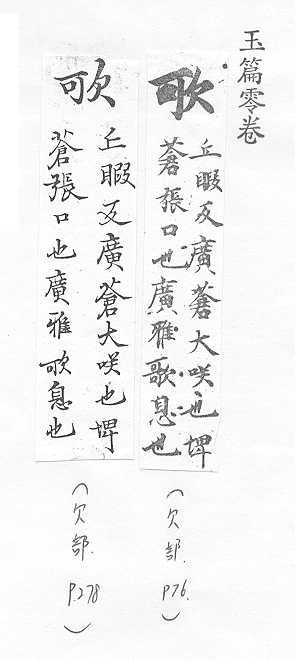 玉篇零卷
歌
丘暇反廣蒼大咲也埤
蒼張口也廣雅歌息也
(欠部.
P76.
)
㰤
丘暇反廣蒼大咲也埤
蒼張口也廣雅㰤息也
(欠部.
P278
)